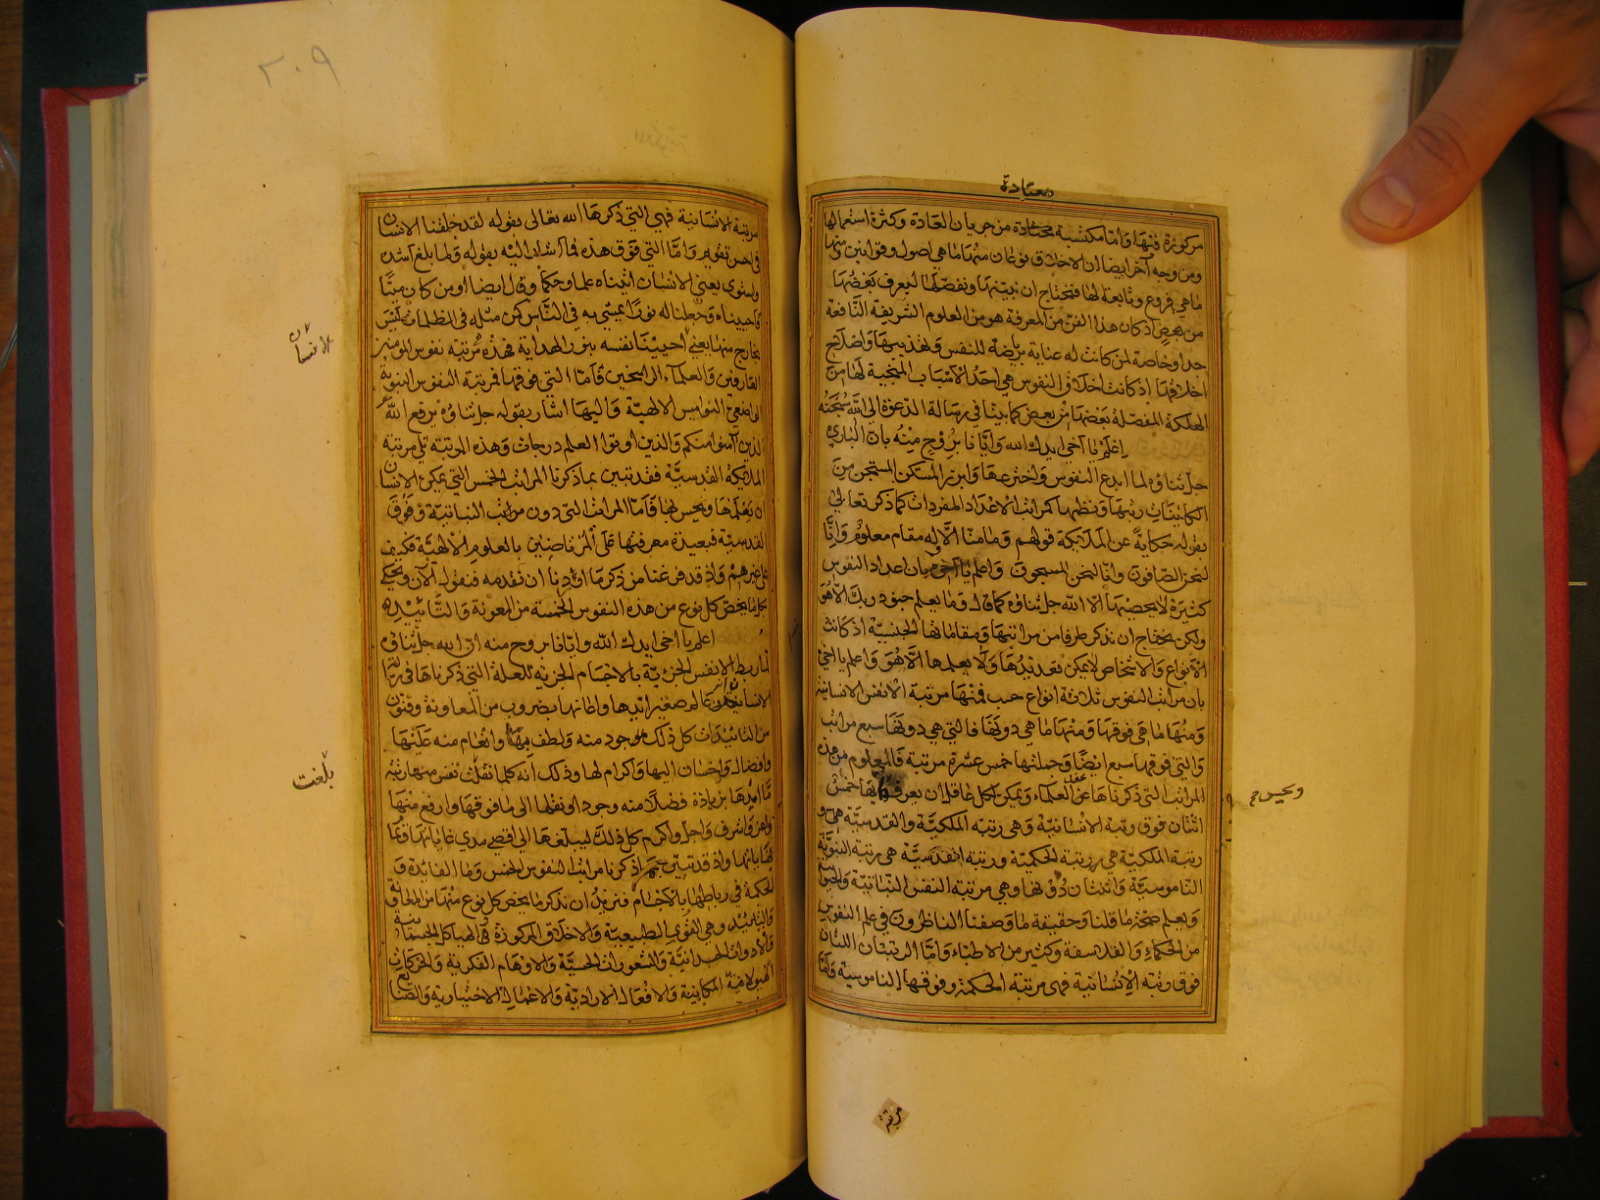 معتادة
مركوزة فيها واما مكتسبة معتادة من جريان العادة وكثرة استعمالها
ومن وجه آخر ايضا ان الاخلاق نوعان منها ما هي اصول وقوانين ومنها
ما هي فروع وتابعة لها فنحتاج ان نبينها ونفصلها ليعرف بعضها
من بعض اذ كان هذا الفن من المعرفة هو من العلوم الشريفة النافعة
جدا وخاصة لمن كانت له عناية برياضة للنفس وتهذيبها واصلاح
اخلاقها اذ كانت اخلاق النفوس هي احد الاسباب المنجية لها من
الهلكة المفصلة بعضها من بعض كما بينا في رسالة الدعوة الى الله سبحنه
اعلم يا اخي ايدك الله وايانا بروح منه بان الباري
جل ثناؤه لما ابدع النفوس واخترعها وابرز المستكن المستجن من
الكاينات رتبها ونظمها كمراتب الاعداد المفردات كما ذكر تعالى
بقوله حكاية عن الملايكة قولهم وما منا الا له مقام معلوم وانا
لنحن الصافون وانا لنحن المسبحون واعلم يا اخي بان اعداد النفوس
كثيرة لا يحصيها الا الله جل ثناؤه كما قال وما يعلم جنود ربك الا هو
ولكن نحتاج ان نذكر طرفا من مراتبها ومقاماتها الجنسية اذ كانت
الانواع والاشخاص لا يمكن تعديدها ولا يعلمها الا هو واعلم يا اخي
بان مراتب النفوس ثلاثة انواع حسب فمنها مرتبة الانفس الانسانية
ومنها ما هي فوقها ومنها ما هي دونها فالتي هي دونها سبع مراتب
والتي فوقها سبع ايضا وجملتها خمس عشرة مرتبة فالمعلوم من هذه
المراتب التي ذكرناها عند العلماء ويمكن لكل عاقل ان يعرفها خمس
ويحس
اثنتان فوق رتبة الانسانية وهي رتبة الملكية والقدسية هي و
رتبة الملكية هي رتبة الحكمية ورتبة القدسية هي رتبة النبوية
الناموسية واثنتان دونها وهي مرتبة النفس النباتية والحيوانية
ويعلم صحة ما قلنا وحقيقة ما وصفنا الناظرون في علم النفوس
من الحكماء والفلاسفة وكثير من الاطباء واما الرتبتان اللتان
فوق رتبة الانسانية فهي مرتبة الحكمة وفوقها الناموسية واما
مرتبة
٢٠٩
مرتبة الانسانية فهي التي ذكرها الله تعالى بقوله لقد خلقنا الانسان
في احسن تقويم واما التي فوق هذه فما اشار اليه بقوله ولما بلغ اشده
واستوى يعني الانسان اتيناه علما وحكما وقال ايضا اومن كان ميتا
فاحييناه وجعلنا له نورا يمشي به في الناس كمن مثله في الظلمات ليس
الانسان
بخارج منها يعني احييت نفسه بنور الهداية فهذه مرتبة نفوس المومنين
العارفين والعلماء الراسخين فاما التي فوقها فمرتبة النفوس النبوية
الواضعي النواميس الالهية واليها اشار بقوله جل ثناؤه يرفع الله
الذين آمنوا منكم والذين اوتوا العلم درجات وهذه المرتبة تلي مرتبة
الملايكة القدسية فقد تبين بما ذكرنا المراتب الخمس التي يمكن الانسان
ان يعلمها ويحس بها فاما المراتب التي دون مراتب النباتية وفوق
القدسية فبعيدة معرفتها على المرتاضين بالعلوم الالهية فكيف
على غيرهم واذ قد فرغنا من ذكر ما اردنا ان نقدمه فنقول الآن ونحكي
بكل ما يخص كل نوع من هذه النفوس الخمسة من المعونة والتاييد
اعلم يا اخي ايدك الله وايانا بروح منه ان الله جل ثناؤه
لما ربط الانفس الجزئية بالاجسام الجزئية للعلة التي ذكرناها في رسالة
الانسان عالم صغير ايدها واعانها بضروب من المعاونة وفنون
من التاييدات كل ذلك موجود منه ولطف بها وانعام منه عليها
وافضال واحسان اليها واكرام لها وذلك انه كلما نقلت نفس منها رتبة
بلغت
ما امدها بزيادة فضلا منه وجودا ونقلها الى ما فوقها وارفع منها
واعز واشرف واجل واكرم كل ذلك ليبلغها الى اقصى مدى غاياتها وتمام
نهاياتها واذ قد تبين بما ذكرنا مراتب النفوس الخمس وما الفائدة و
الحكمة في رباطها بالاجسام فنريد ان نذكر ما يخص كل نوع منها من المعاونة
والتاييد وهي القوى الطبيعية والاخلاق المركوزة في الهياكل الجسمانية
والادوات الجسدانية والشعورات الحسية والاوهام الفكرية والحركات
المكانية والافعال الارادية والاعمال الاختيارية والصنايع